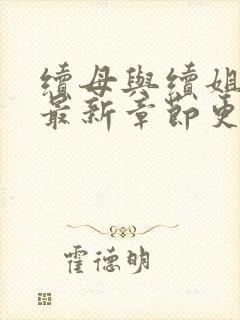 續母與續姐
最新章節更
霍德明